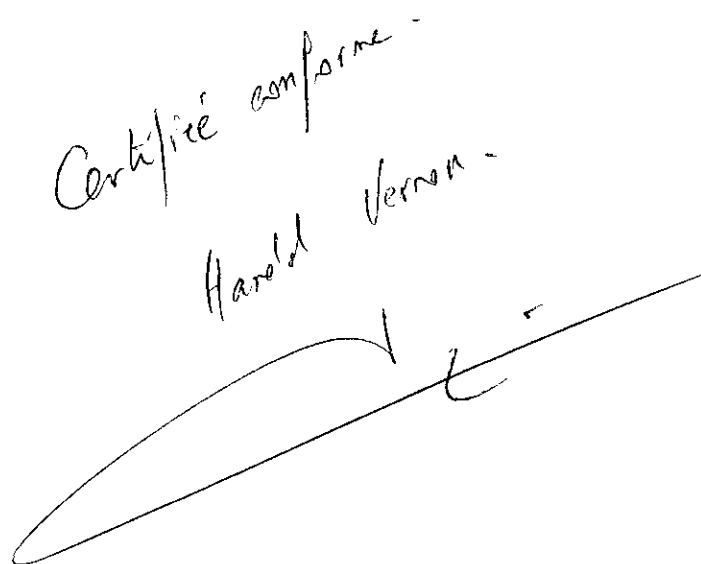 Certifiée conforme -
Harold Vernon -